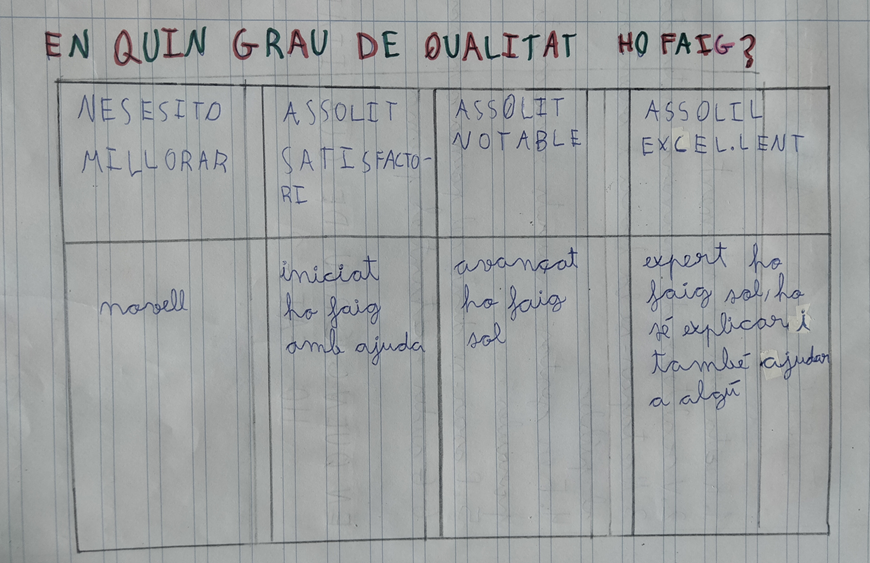 EN QUIN GRAU DE QUALITAT HO FAIG?
NESESITO
MILLORAR
ASSOLIT
SATISFACTO-
RI
ASSOLIT
NOTABLE
ASSOLIL
EXCEL.LENT
novell
iniciat
ho faig
amb ajuda
avançat
ho faig
sol
expert ho
faig sol, ho
sé explicar i
també ajudar
a algú